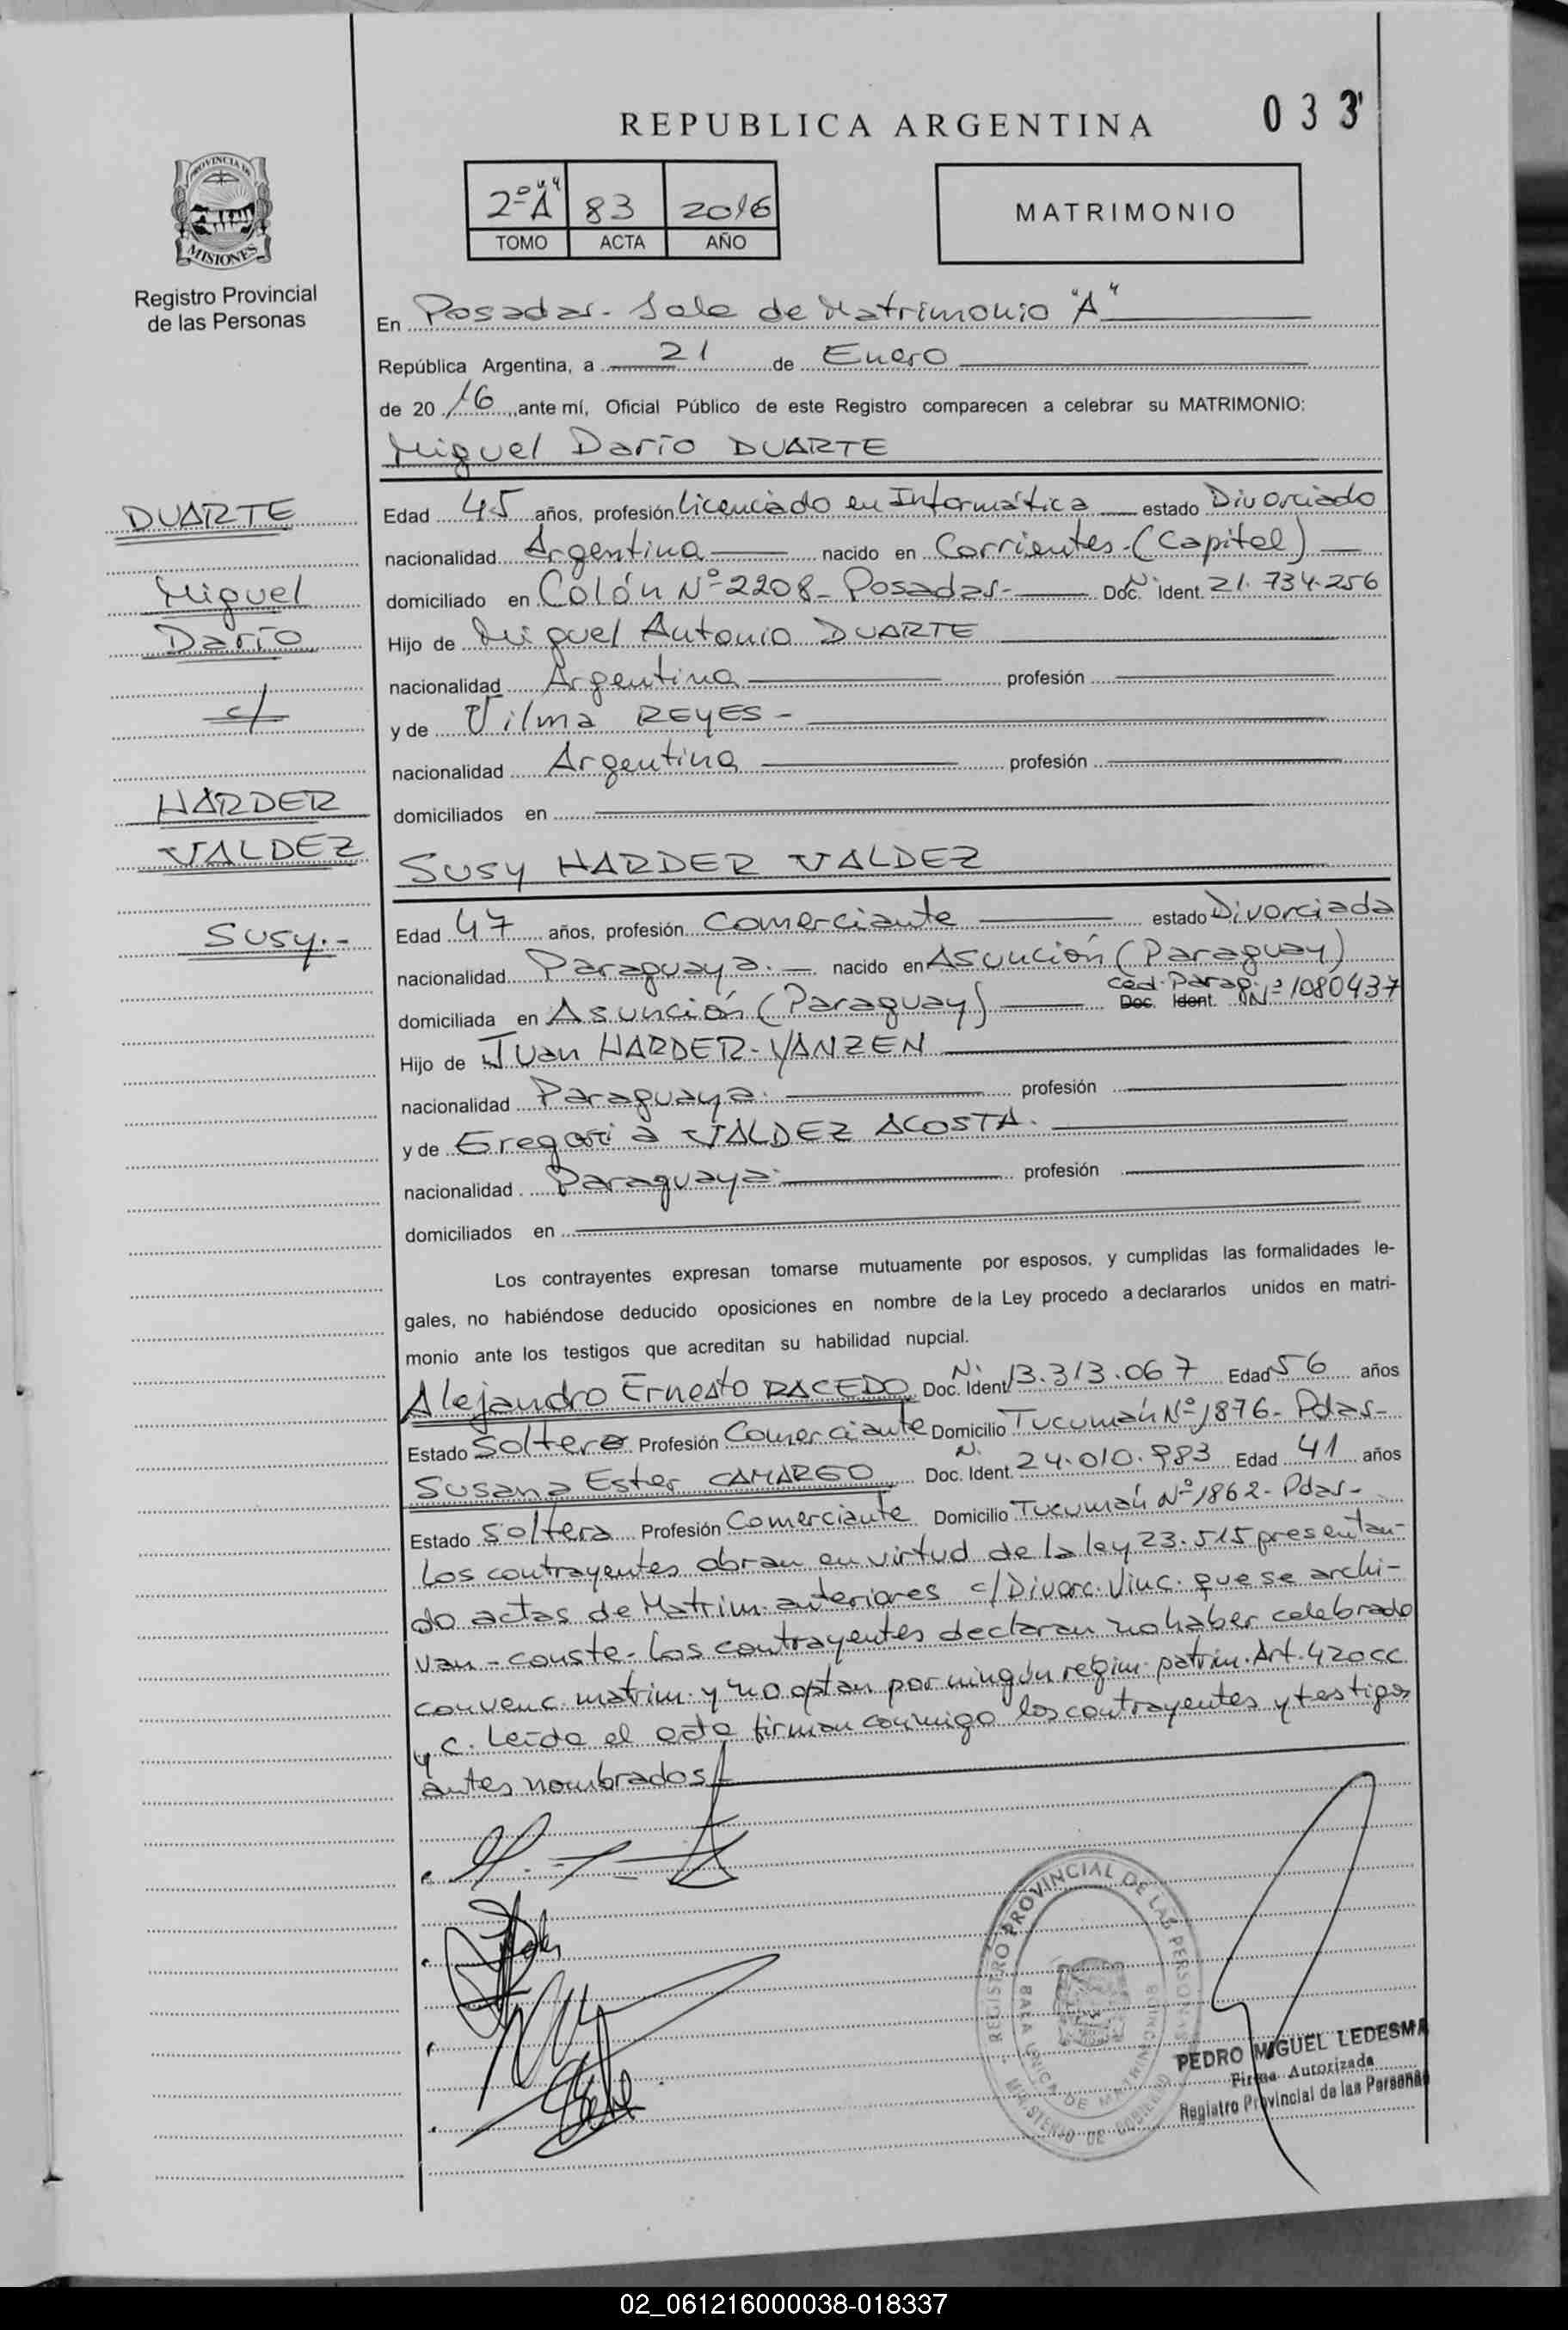 033
REPUBLICA ARGENTINA
PROVINCIA DE
MISIONES
Registro Provincial
de las Personas
2º "A" 83 2016
TOMO ACTA AÑO
MATRIMONIO
En Posadas - Sala de Matrimonio "A"
República Argentina, a 21 de Enero
de 2016, ante mí, Oficial Público de este Registro comparecen a celebrar su MATRIMONIO:
Miguel Darío DUARTE
DUARTE
Miguel
Darío
c/
HARDER
VALDEZ
Susy.-
Edad 45 años, profesión Licenciado en Informática estado Divorciado
nacionalidad Argentina nacido en Corrientes - (Capital)
domiciliado en Colón Nº 2208 - Posadas - Doc. N. Ident. 21.734.256
Hijo de Miguel Antonio DUARTE
nacionalidad Argentina profesión
y de Vilma REYES -
nacionalidad Argentina profesión
domiciliados en
SUSY HARDER VALDEZ
Edad 47 años, profesión Comerciante estado Divorciada
nacionalidad Paraguaya. nacido en Asunción (Paraguay)
domiciliada en Asunción (Paraguay) Céd. Parag. Doc. Ident. Nº 1080437
Hijo de Juan HARDER-YANZEN
nacionalidad Paraguaya. profesión
y de Gregoria VALDEZ ACOSTA.
nacionalidad Paraguaya. profesión
domiciliados en
Los contrayentes expresan tomarse mutuamente por esposos, y cumplidas las formalidades le-
gales, no habiéndose deducido oposiciones en nombre de la Ley procedo a declararlos unidos en matri-
monio ante los testigos que acreditan su habilidad nupcial.
Alejandro Ernesto RACEDO Doc. N. Ident. 13.313.067 Edad 56 años
Estado Soltero Profesión Comerciante Domicilio Tucumán Nº 1876 - Pdas -
Susana Ester CAMARGO Doc. N. Ident. 24.010.983 Edad 41 años
Estado Soltera Profesión Comerciante Domicilio Tucumán Nº 1862 - Pdas -
Los contrayentes obran en virtud de la ley 23.515 presentan-
do actas de Matrim. anteriores c/ Divorc. Vinc. que se archi-
van - conste - Los contrayentes declaran no haber celebrado
convenc. matrim. y no optan por ningún regim. patrim. Art. 420 CC
y C. Leída el acta firman conmigo los contrayentes y testigos
antes nombrados
REGISTRO PROVINCIAL DE LAS PERSONAS
MINISTERIO DE GOBIERNO
DE MATRIMONIOS
PEDRO MIGUEL LEDESMA
Firma Autorizada
Registro Provincial de las Personas
02_061216000038-018337